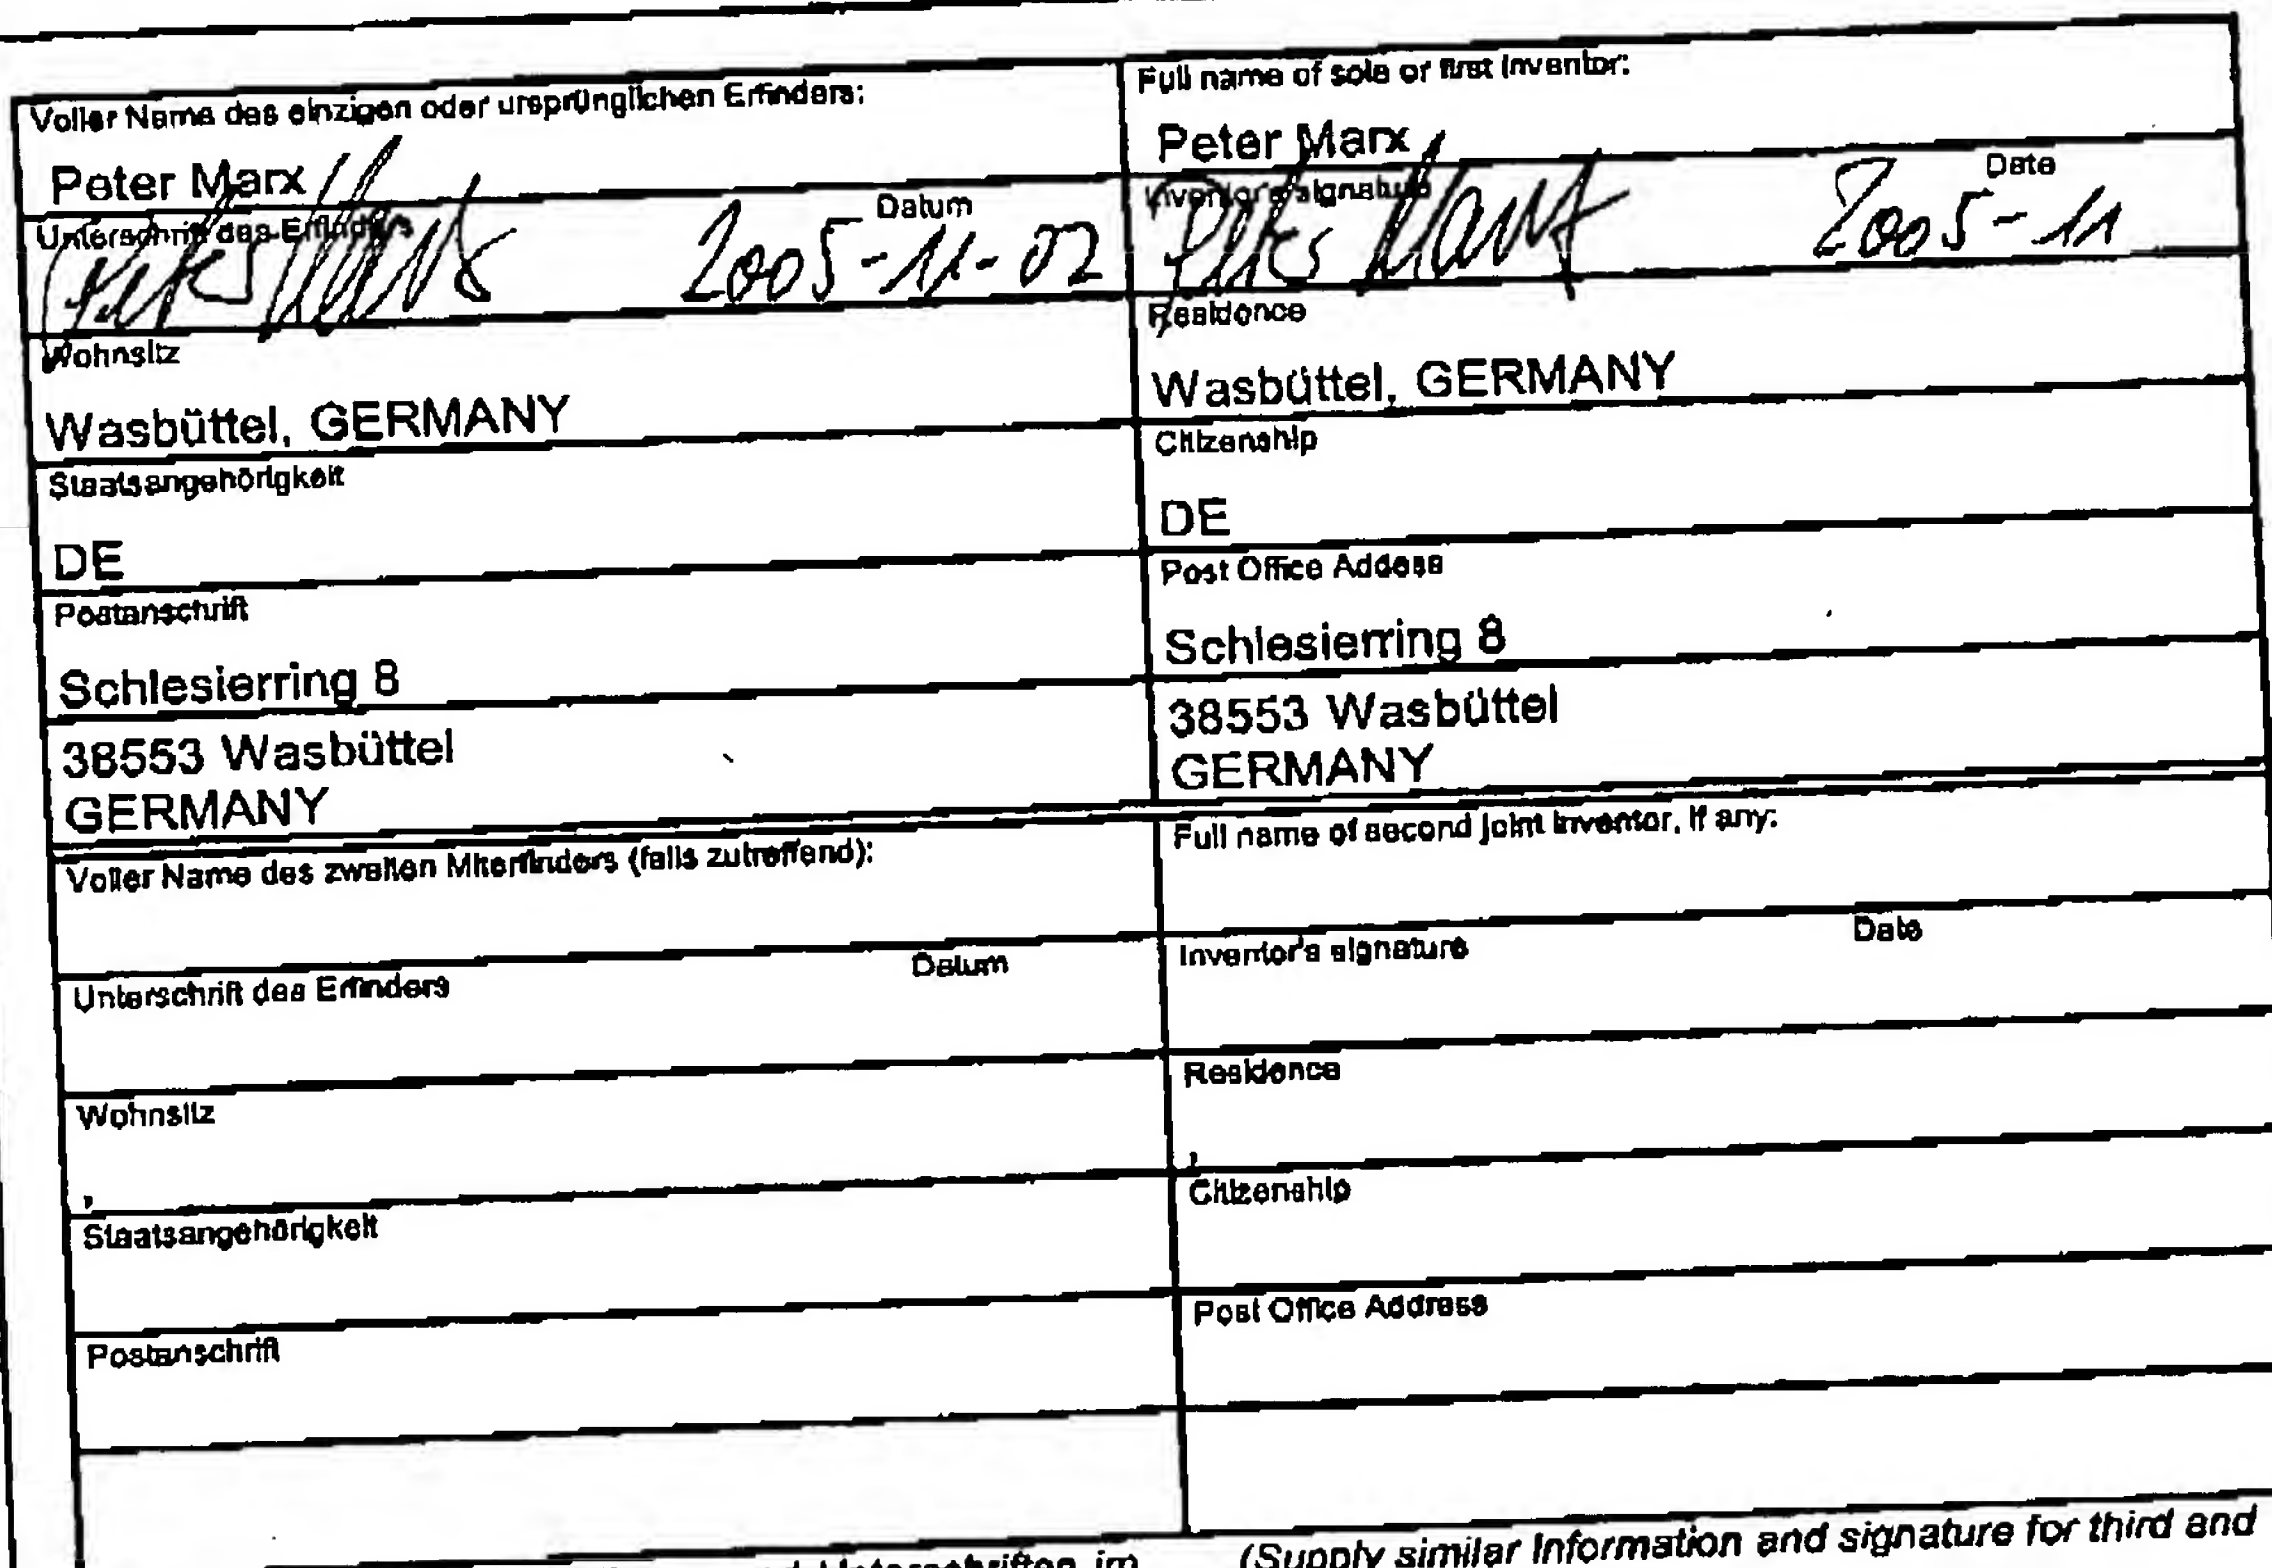 Voller Name des einzigen oder ursprünglichen Erfinders:
Peter Marx
Unterschrift des Erfinders
Datum
Peter Marx 2005-11-02
Wohnsitz
Wasbüttel, GERMANY
Staatsangehörigkeit
DE
Postanschrift
Schlesierring 8
38553 Wasbüttel
GERMANY
Voller Name des zweiten Miterfinders (falls zutreffend):
Unterschrift des Erfinders
Datum
Wohnsitz
,
Staatsangehörigkeit
Postanschrift
Unterschriften im
Full name of sole or first inventor:
Peter Marx
Inventor's signature
Date
Peter Marx 2005-11
Residence
Wasbüttel, GERMANY
Citizenship
DE
Post Office Addess
Schlesierring 8
38553 Wasbüttel
GERMANY
Full name of second joint inventor, if any:
Inventor's signature
Date
Residence
,
Citizenship
Post Office Address
(Supply similar information and signature for third and